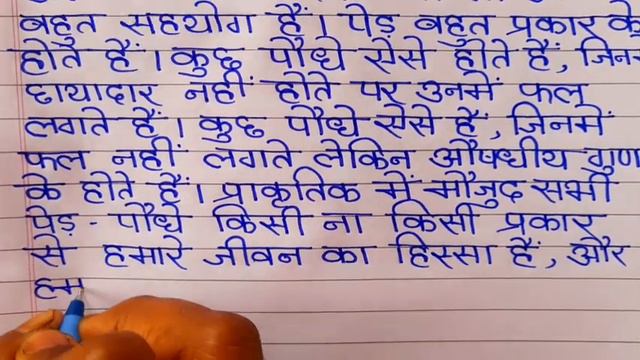 बहुत सहयोग हैं। पेड़ बहुत प्रकार के
होते हैं। कुछ पौधे ऐसे होते हैं, जिन
छायादार नहीं होते पर उनमें फल
लगते हैं। कुछ पौधे ऐसे हैं, जिनमें
फल नहीं लगते लेकिन औषधीय गुण
के होते हैं। प्राकृतिक में मौजुद सभी
पेड़ - पौधे किसी ना किसी प्रकार
से हमारे जीवन का हिस्सा हैं, और
हम